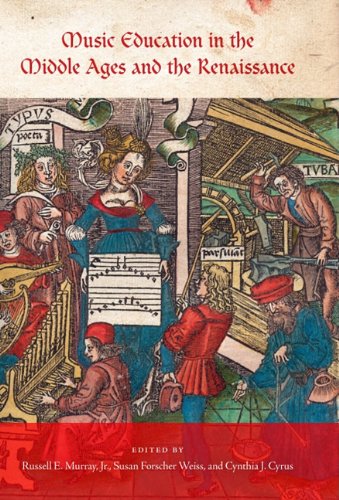 Music Education in the
Middle Ages and the Renaissance
TYPUS
poeta
TUBA
EDITED BY
Russell E. Murray, Jr., Susan Forscher Weiss, and Cynthia J. Cyrus